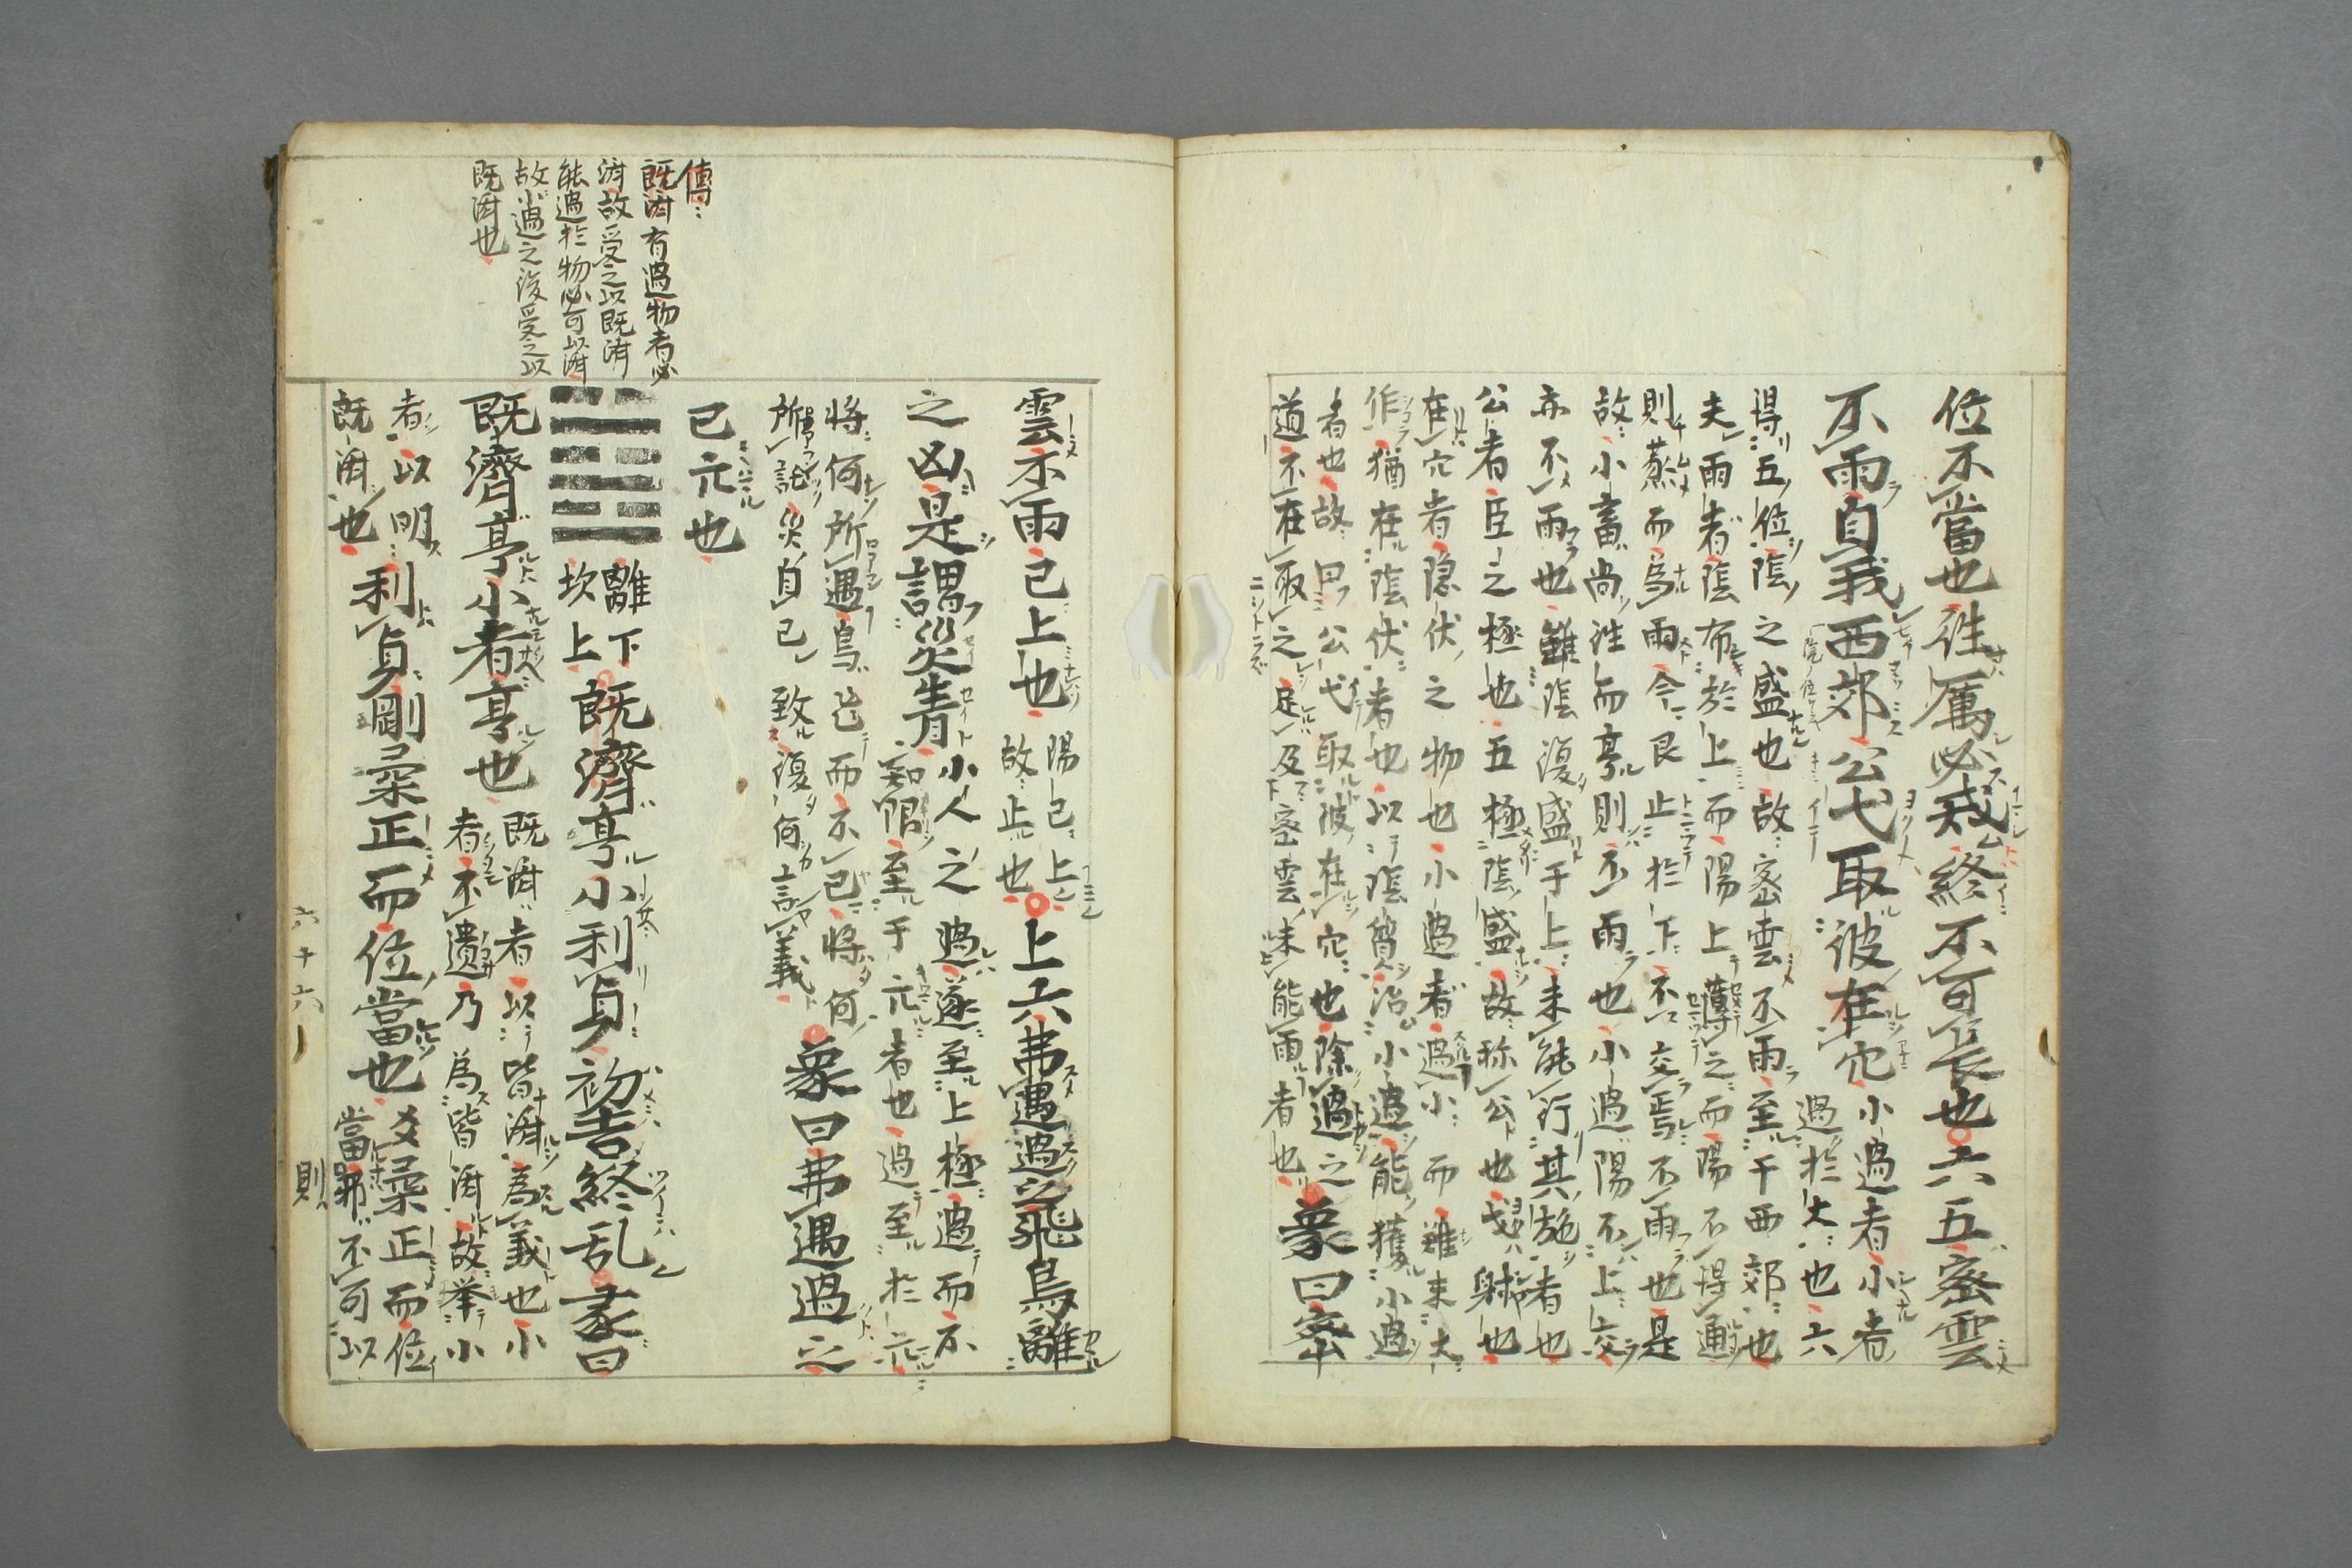 位不當也徃厲必戒終不可長也六五密雲
不雨自我西郊公弋取彼在穴小過者小者
過於大也六
得五位陰之盛也故密雲不雨至于西郊也
夫雨者陰布於上而陽上薄之而陽不得通
則蒸而為雨今艮止於下不交焉不雨也是
故小畜尚徃而亨則不雨也小過陽不上交
亦不雨也雖陰復盛于上未能行其施者也
公者臣之極也五極陰盛故称公也弋射也
在穴者隐伏之物也小過者過小而難未大
作猶在陰伏者也以陰質治小過能獲小過
者也故曰公弋取彼在穴也除過之
道不在取之足及密雲未能雨者也象曰密
雲不雨已上也陽已上
故止也上六弗遇過之飛鳥離
之凶是謂災眚小人之過遂至上極過而不
知限至于亢者也過至於亢
将何所遇飛而不已将何
所託災自己致復何言義象曰弗遇過之
已亢也
離下
坎上既濟亨小利貞初吉終乱彖曰
既濟亨小者亨也既済者以皆済為義也小
者不遺乃為皆済故挙小
者以明
既済也利貞剛柔正而位當也爻柔正而位
當邪不可以
則
六十六
傳
既済有過物者必
済故受之以既済
能過於物必可以済
故小過之後受之以
既済也